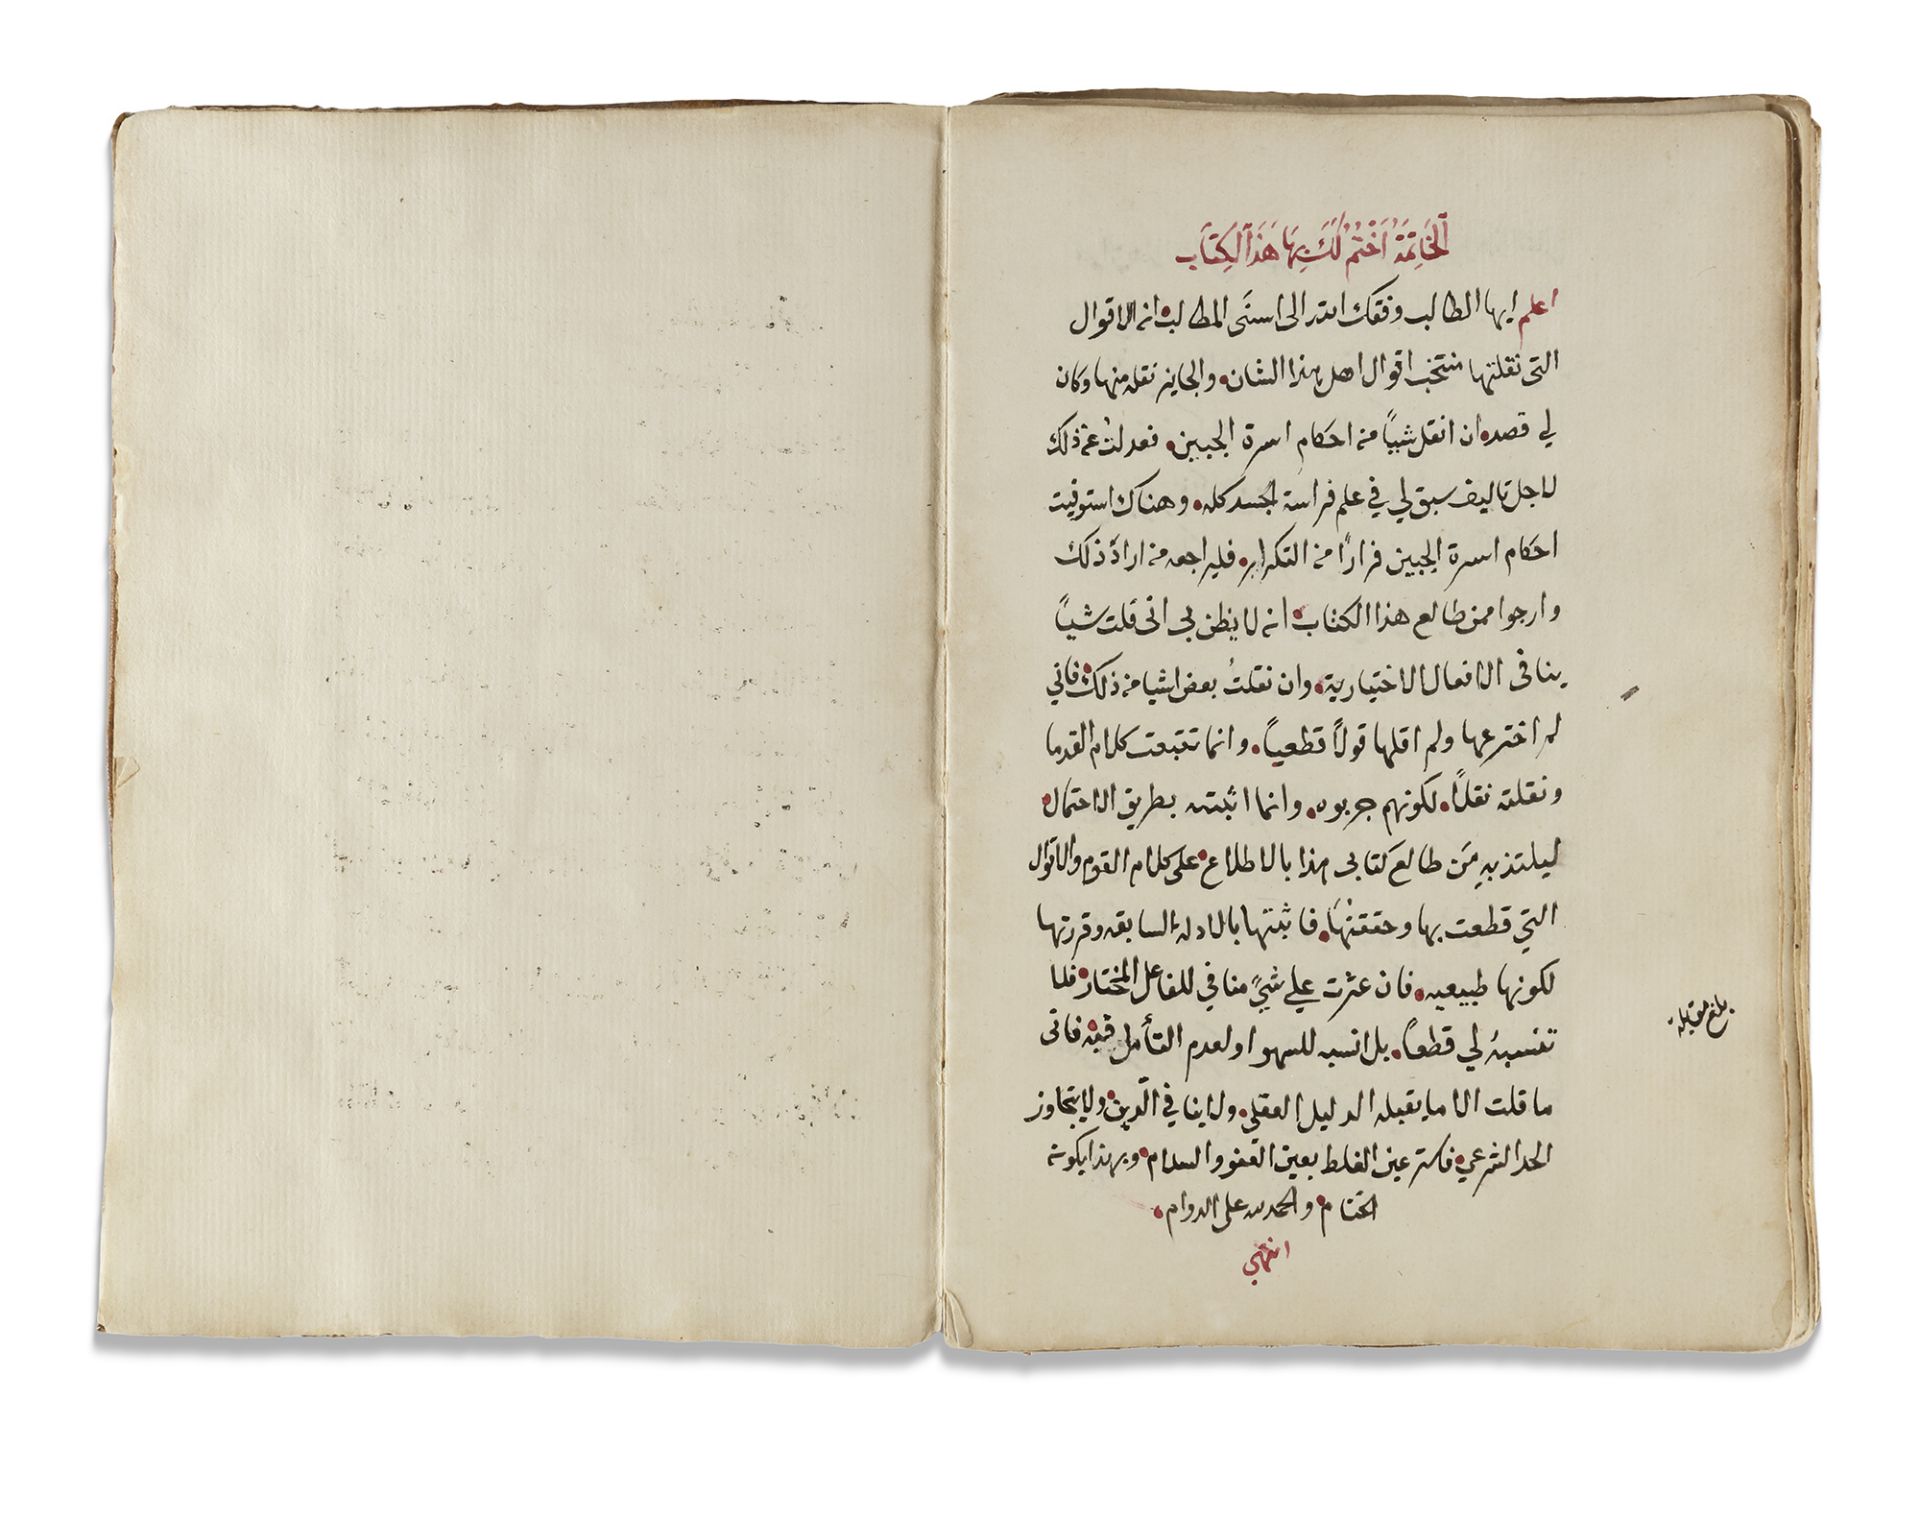 اَلْخَاتِمَةُ اَخْتُمُ لَكَ بِهَا هَذَا الْكِتَاب
اعلم ايها الطالب وفقك الله الى اسنَى المطالب ان الاقوال
التى نقلتها منتخب اقوال اهل هذا الشان والجايز نقله منها وكان
لي قصد ان انقل شيياً من احكام اسرة الجبين فعدلتُ عن ذلك
لاجل تاليف سبق لي في علم فراسة الجسد كله وهناك استوفيت
احكام اسرة الجبين فراراً من التكرار فليراجعه من اراد ذلك
وارجوا ممن طالع هذا الكتاب انه لا يظن بى انى قلت شيياً
ينافى الافعال الاختيارية وان نقلتُ بعض اشيا من ذلك فاني
لم اخترعها ولم اقلها قولاً قطعياً وانما تتبعت كلام القدما
ونقلته نقلاً لكونهم جربوه وانما اثبته بطريق الاحتمال
ليلتذ بهِ مَن طالع كتابى هذا بالاطلاع على كلام القوم والاقوال
التي قطعت بها وحققتها فاثبتها بالادلة السابقه وقررتها
لكونها طبيعيه فان عثرت علي شيءٍ منافي للفاعل المختار فلا
تنسبهُ لي قطعاً بل انسبه للسهو او لعدم التأمل فيه فانى
ما قلت الا ما يقبله الدليل العقلى ولا ينافي الدين ولا يتجاوز
الحد الشرعي فاستر عين الغلط بعين العفو والسلام وبهذا يكون
الختام والحمد لله على الدوام
انتهي
بلغ مقابله